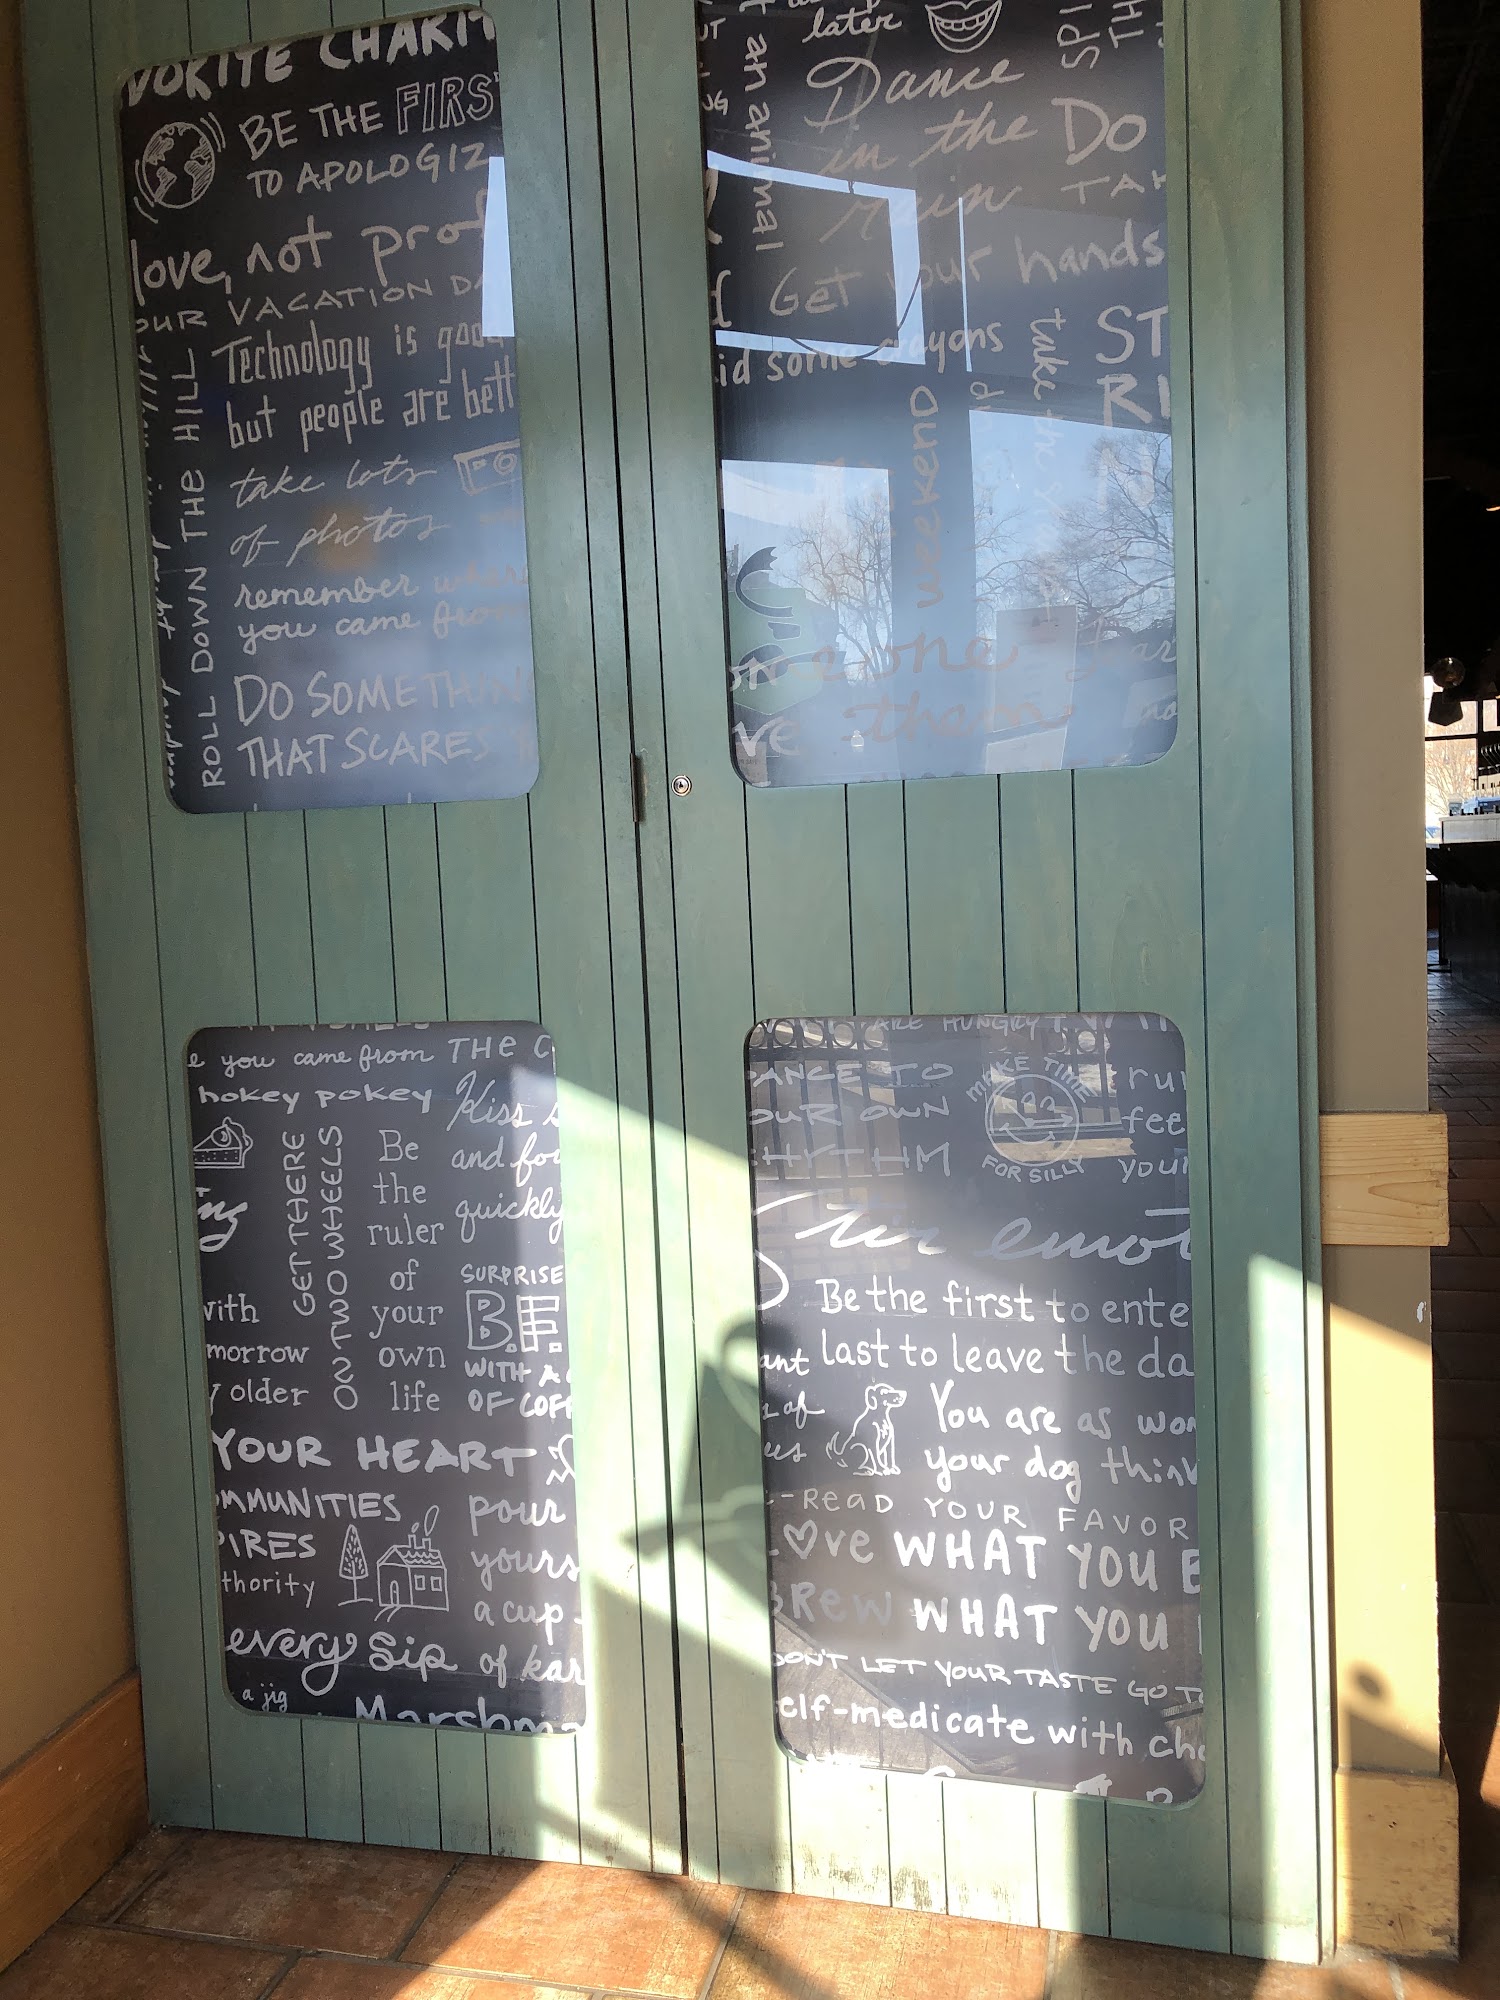 VORITE CHARIT
BE THE FIRS
TO APOLOGIZ
love, not prof
OUR VACATION DA
Technology is good
but people are bett
take lots
of photos
remember where
you came from
DO SOMETHIN
THAT SCARES
ROLL DOWN THE HILL
later
an animal
Dance
in the
rain
DO
TAK
Get your hands
some crayons
take the
ST
RI
weekend
one
ve them
e you came from THE C
hokey pokey
Kiss
and for
quickly
GET THERE
ON TWO WHEELS
Be
the
ruler
of
your
own
life
SURPRISE
B.F.F.
WITH A
OF COFF
with
morrow
older
YOUR HEART
MMUNITIES
PIRES
thority
pour
yours
a cup
every sip of kar
a jig
Marshma
ARE HUNGRY
ANCE TO
OUR OWN
RHYTHM
MAKE TIME
FOR SILLY
rul
fee
your
Stir emot
Be the first to ente
last to leave the da
ant
of
us
You are as won
your dog think
READ YOUR FAVOR
LOVE WHAT YOU B
BREW WHAT YOU
DON'T LET YOUR TASTE GO TO
elf-medicate with cho